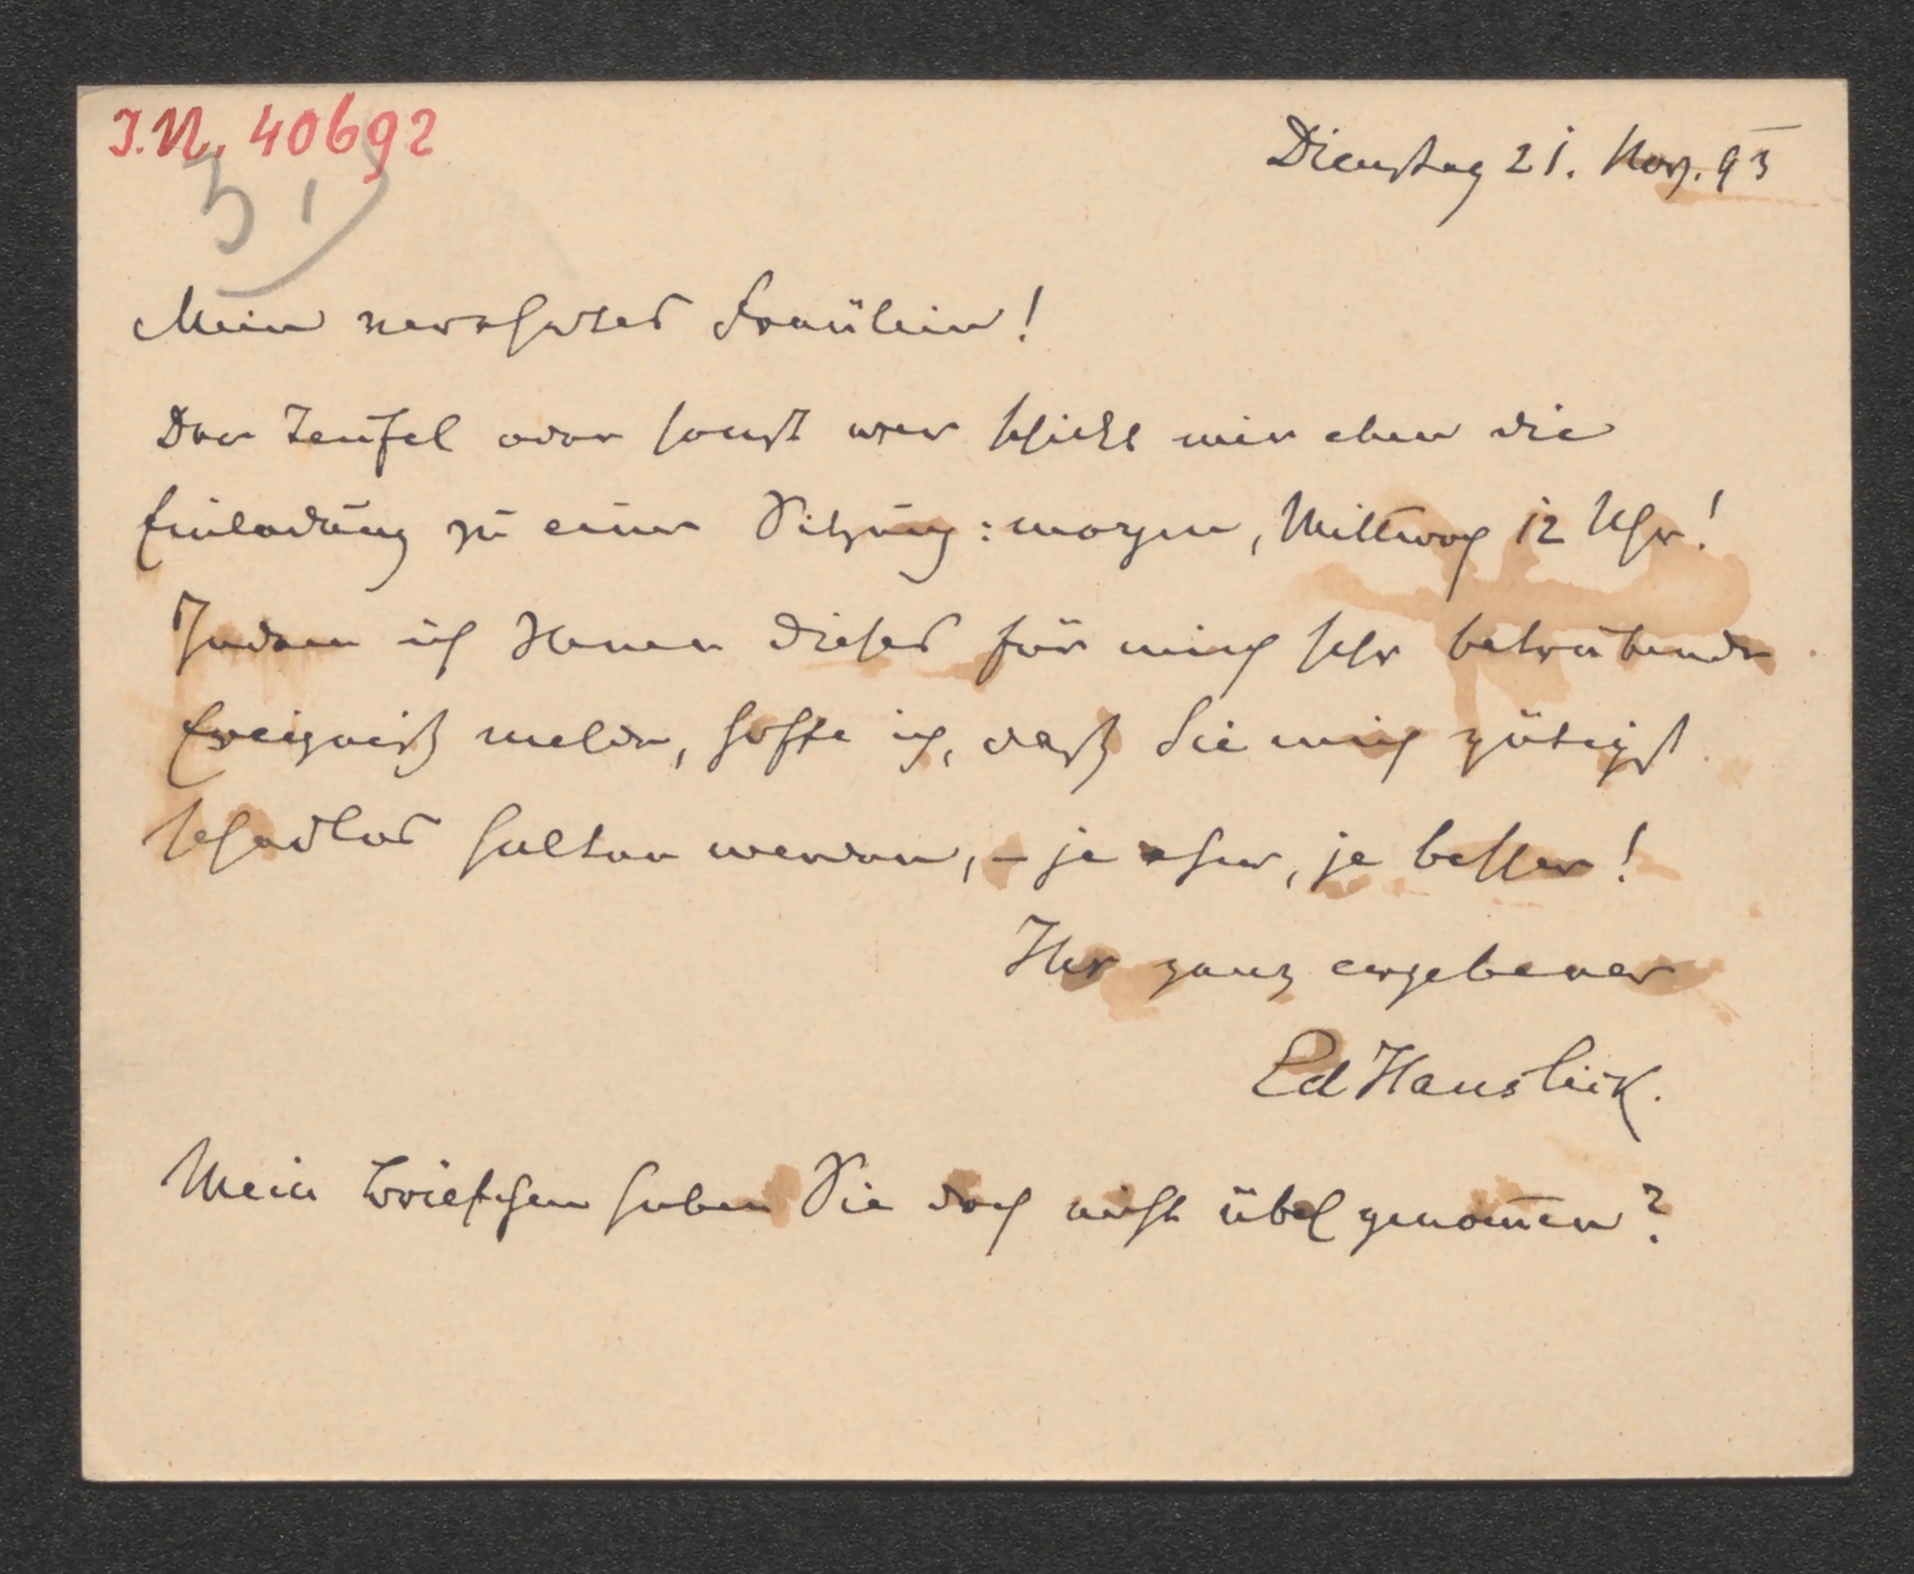 J.N. 40692
31)
Dienstag 21. Nov. 93
Mein verehrtes Fräulein!
Der Teufel oder sonst wer schickt mir eben die
Einladung zu einer Sitzung: morgen, Mittwoch 12 Uhr!
Indem ich Ihnen dieses für mich sehr betrübende
Ereigniß melde, hoffe ich, daß Sie mich gütigst
schadlos halten werden, – je eher, je besser!
Ihr ganz ergebener
Ed Hanslick.
Mein Briefchen haben Sie doch nicht übel genom̄en?